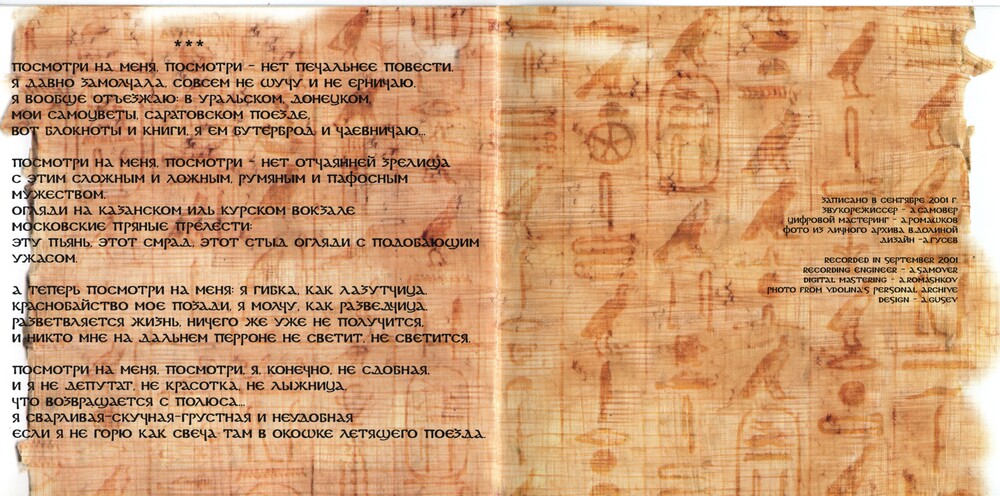 * * *
ПОСМОТРИ НА МЕНЯ, ПОСМОТРИ - НЕТ ПЕЧАЛЬНЕЕ ПОВЕСТИ.
Я ДАВНО ЗАМОЛЧАЛА, СОВСЕМ НЕ ШУЧУ И НЕ ЕРНИЧАЮ.
Я ВООБЩЕ ОТЪЕЗЖАЮ: В УРАЛЬСКОМ, ДОНЕЦКОМ,
МОИ САМОЦВЕТЫ, САРАТОВСКОМ ПОЕЗДЕ,
ВОТ БЛОКНОТЫ И КНИГИ, Я ЕМ БУТЕРБРОД И ЧАЕВНИЧАЮ...
ПОСМОТРИ НА МЕНЯ, ПОСМОТРИ - НЕТ ОТЧАЯННЕЙ ЗРЕЛИЩА
С ЭТИМ СЛОЖНЫМ И ЛОЖНЫМ, РУМЯНЫМ И ПАФОСНЫМ
МУЖЕСТВОМ.
ОГЛЯДИ НА КАЗАНСКОМ ИЛЬ КУРСКОМ ВОКЗАЛЕ
МОСКОВСКИЕ ПРЯНЫЕ ПРЕЛЕСТИ:
ЭТУ ПЬЯНЬ, ЭТОТ СМРАД, ЭТОТ СТЫД ОГЛЯДИ С ПОДОБАЮЩИМ
УЖАСОМ.
А ТЕПЕРЬ ПОСМОТРИ НА МЕНЯ: Я ГИБКА, КАК ЛАЗУТЧИЦА.
КРАСНОБАЙСТВО МОЕ ПОЗАДИ, Я МОЛЧУ, КАК РАЗВЕДЧИЦА.
РАЗВЕТВЛЯЕТСЯ ЖИЗНЬ, НИЧЕГО ЖЕ УЖЕ НЕ ПОЛУЧИТСЯ,
И НИКТО МНЕ НА ДАЛЬНЕМ ПЕРРОНЕ НЕ СВЕТИТ, НЕ СВЕТИТСЯ.
ПОСМОТРИ НА МЕНЯ, ПОСМОТРИ, Я, КОНЕЧНО, НЕ СДОБНАЯ,
И Я НЕ ДЕПУТАТ, НЕ КРАСОТКА, НЕ ЛЫЖНИЦА,
ЧТО ВОЗВРАЩАЕТСЯ С ПОЛЮСА...
Я СВАРЛИВАЯ-СКУЧНАЯ-ГРУСТНАЯ И НЕУДОБНАЯ
ЕСЛИ Я НЕ ГОРЮ КАК СВЕЧА ТАМ В ОКОШКЕ ЛЕТЯЩЕГО ПОЕЗДА.
ЗАПИСАНО В СЕНТЯБРЕ 2001 Г.
ЗВУКОРЕЖИССЕР - А.САМОВЕР
ЦИФРОВОЙ МАСТЕРИНГ - А.РОМАШКОВ
ФОТО ИЗ ЛИЧНОГО АРХИВА В.ДОЛИНОЙ
ДИЗАЙН -А.ГУСЕВ
RECORDED IN SEPTEMBER 2001
RECORDING ENGINEER - A.SAMOVER
DIGITAL MASTERING - A.ROMASHKOV
PHOTO FROM V.DOLINA'S PERSONAL ARCHIVE
DESIGN - A.GUSEV